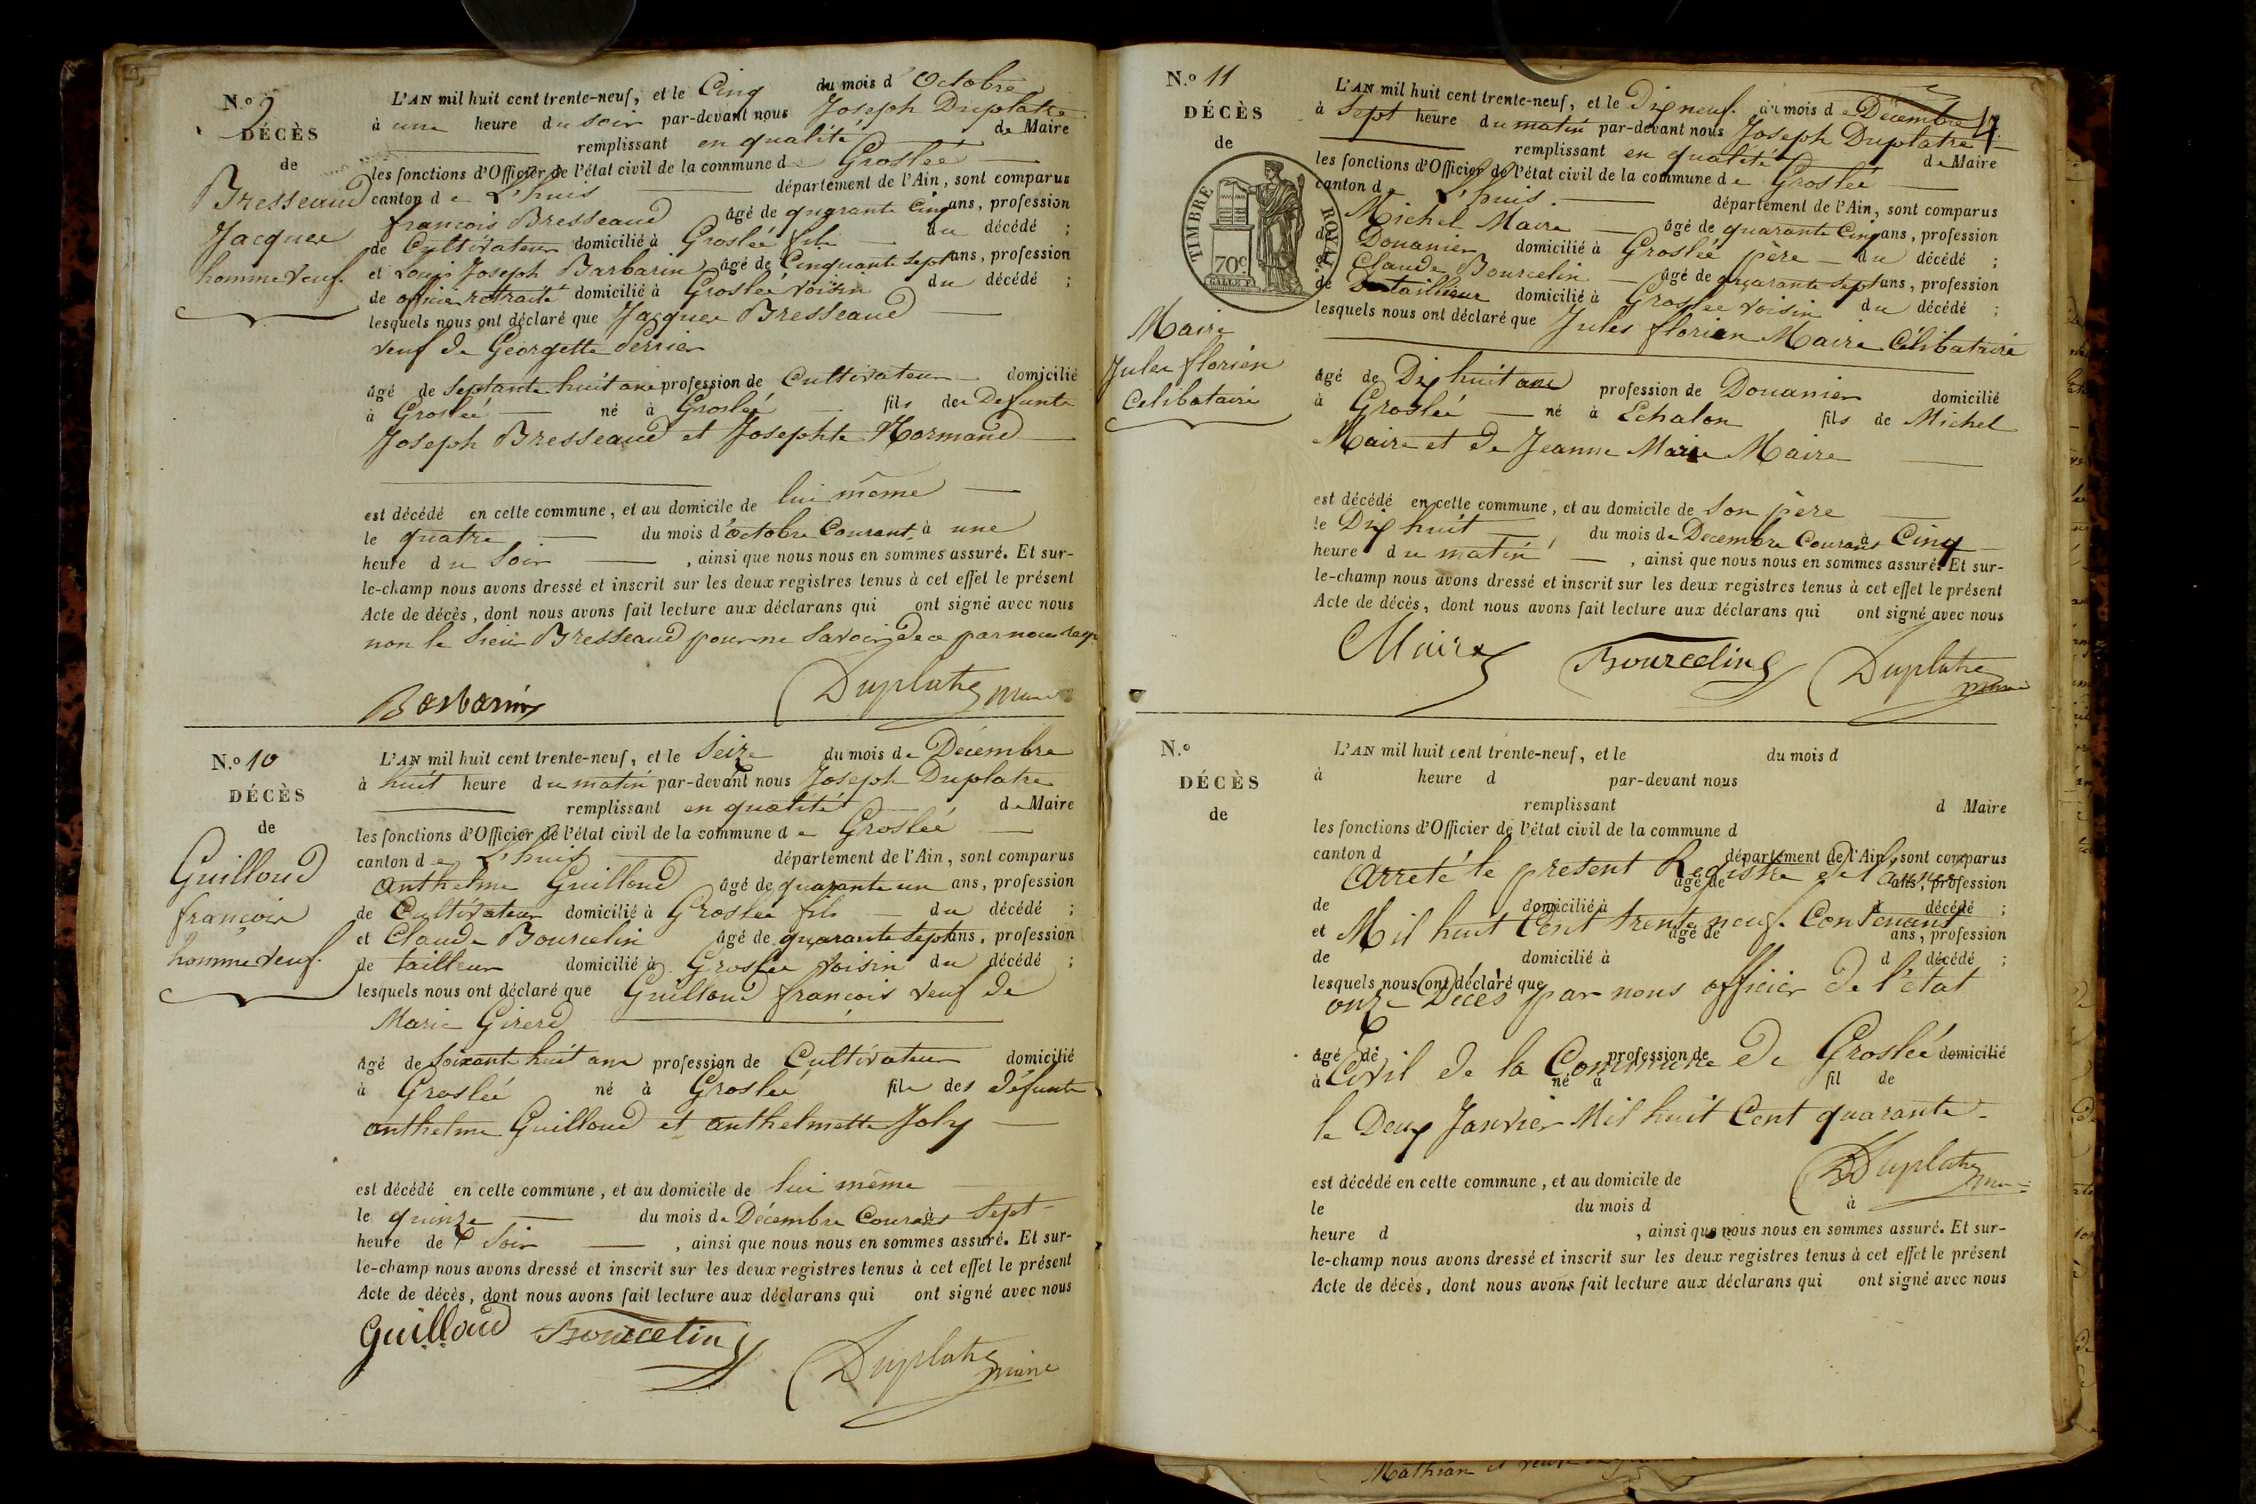 N.o 9
DÉCÈS
de
Bresseaud
Jacques
homme veuf.
L'AN mil huit cent trente-neuf, et le Cinq du mois d'Octobre
à une heure du soir par-devant nous Joseph Duplatre
remplissant en qualité de Maire
les fonctions d'Officier de l'état civil de la commune de Groslée
canton de L'huis département de l'Ain, sont comparus
françois Bresseaud âgé de quarante Cinq ans, profession
de Cultivateur domicilié à Groslée fils du décédé ;
et Louis Joseph Barbarin âgé de Cinquante sept ans, profession
de officier rettraité domicilié à Groslée voisin du décédé ;
lesquels nous ont déclaré que Jacques Bresseaud
veuf de Georgette Perrier
âgé de septante huit ans profession de Cultivateur domicilié
à Groslée né à Groslée fils des Defunts
Joseph Bresseaud et Josephte Normand
est décédé en cette commune, et au domicile de lui même
le quatre du mois d'octobre Courant à une
heure du Soir, ainsi que nous nous en sommes assuré. Et sur-
le-champ nous avons dressé et inscrit sur les deux registres tenus à cet effet le présent
Acte de décès, dont nous avons fait lecture aux déclarans qui ont signé avec nous
non le Sieur Bresseaud pour ne savoir de ce par nous
Barbarin Duplatre maire
N.o 10
DÉCÈS
de
Guilloud
françois
homme veuf.
L'AN mil huit cent trente-neuf, et le Seize du mois de Décembre
à huit heure du matin par-devant nous Joseph Duplatre
remplissant en qualité de Maire
les fonctions d'Officier de l'état civil de la commune de Groslée
canton de L'huis département de l'Ain, sont comparus
anthelme Guilloud âgé de quarante un ans, profession
de Cultivateur domicilié à Groslée fils du décédé ;
et Claude Bourcelin âgé de quarante sept ans, profession
de tailleur domicilié à Groslée voisin du décédé ;
lesquels nous ont déclaré que Guilloud françois veuf de
Marie Girerd
âgé de soixante huit ans profession de Cultivateur domicilié
à Groslée né à Groslée fils des défunts
anthelme Guilloud et anthelmette Joly
est décédé en cette commune, et au domicile de lui même
le quinze du mois de Décembre Courant à Sept
heure de Soir, ainsi que nous nous en sommes assuré. Et sur-
le-champ nous avons dressé et inscrit sur les deux registres tenus à cet effet le présent
Acte de décès, dont nous avons fait lecture aux déclarans qui ont signé avec nous
Guilloud Bourcelin Duplatre maire
N.o 11
DÉCÈS
de
TIMBRE ROYAL
70c
Maire
Jules florien
Célibataire
4
L'AN mil huit cent trente-neuf, et le Dix neuf du mois de Décembre
à Sept heure du matin par-devant nous Joseph Duplatre
remplissant en qualité de Maire
les fonctions d'Officier de l'état civil de la commune de Groslée
canton de L'huis département de l'Ain, sont comparus
Michel Maire âgé de quarante Cinq ans, profession
de Douanier domicilié à Groslée père du décédé ;
et Claude Bourcelin âgé de quarante sept ans, profession
de tailleur domicilié à Groslée voisin du décédé ;
lesquels nous ont déclaré que Jules florien Maire Célibataire
âgé de Dix huit ans profession de Douanier domicilié
à Groslée né à Echalon fils de Michel
Maire et de Jeanne Marie Maire
est décédé en cette commune, et au domicile de son père
le Dix huit du mois de Decembre Courant à Cinq
heure du matin, ainsi que nous nous en sommes assuré. Et sur-
le-champ nous avons dressé et inscrit sur les deux registres tenus à cet effet le présent
Acte de décès, dont nous avons fait lecture aux déclarans qui ont signé avec nous
Maire Bourcelin Duplatre maire
N.o
DÉCÈS
de
L'AN mil huit cent trente-neuf, et le du mois d
à heure d par-devant nous
remplissant d Maire
les fonctions d'Officier de l'état civil de la commune d
canton d département de l'Ain, sont comparus
Arreté le présent Registre de l'annee
âgé de ans, profession
de domicilié à d décédé ;
Mil huit Cent trente neuf. Contenant
et âgé de ans, profession
de domicilié à d décédé ;
lesquels nous ont déclaré que
onze Décès par nous officier de l'état
âgé de profession de domicilié
Civil de la Commune de Groslée
à né à fil de
le Deux Janvier Mil huit Cent quarante
Duplatre maire
est décédé en cette commune, et au domicile de
le du mois d à
heure d , ainsi que nous nous en sommes assuré. Et sur-
le-champ nous avons dressé et inscrit sur les deux registres tenus à cet effet le présent
Acte de décès, dont nous avons fait lecture aux déclarans qui ont signé avec nous
Mathian et